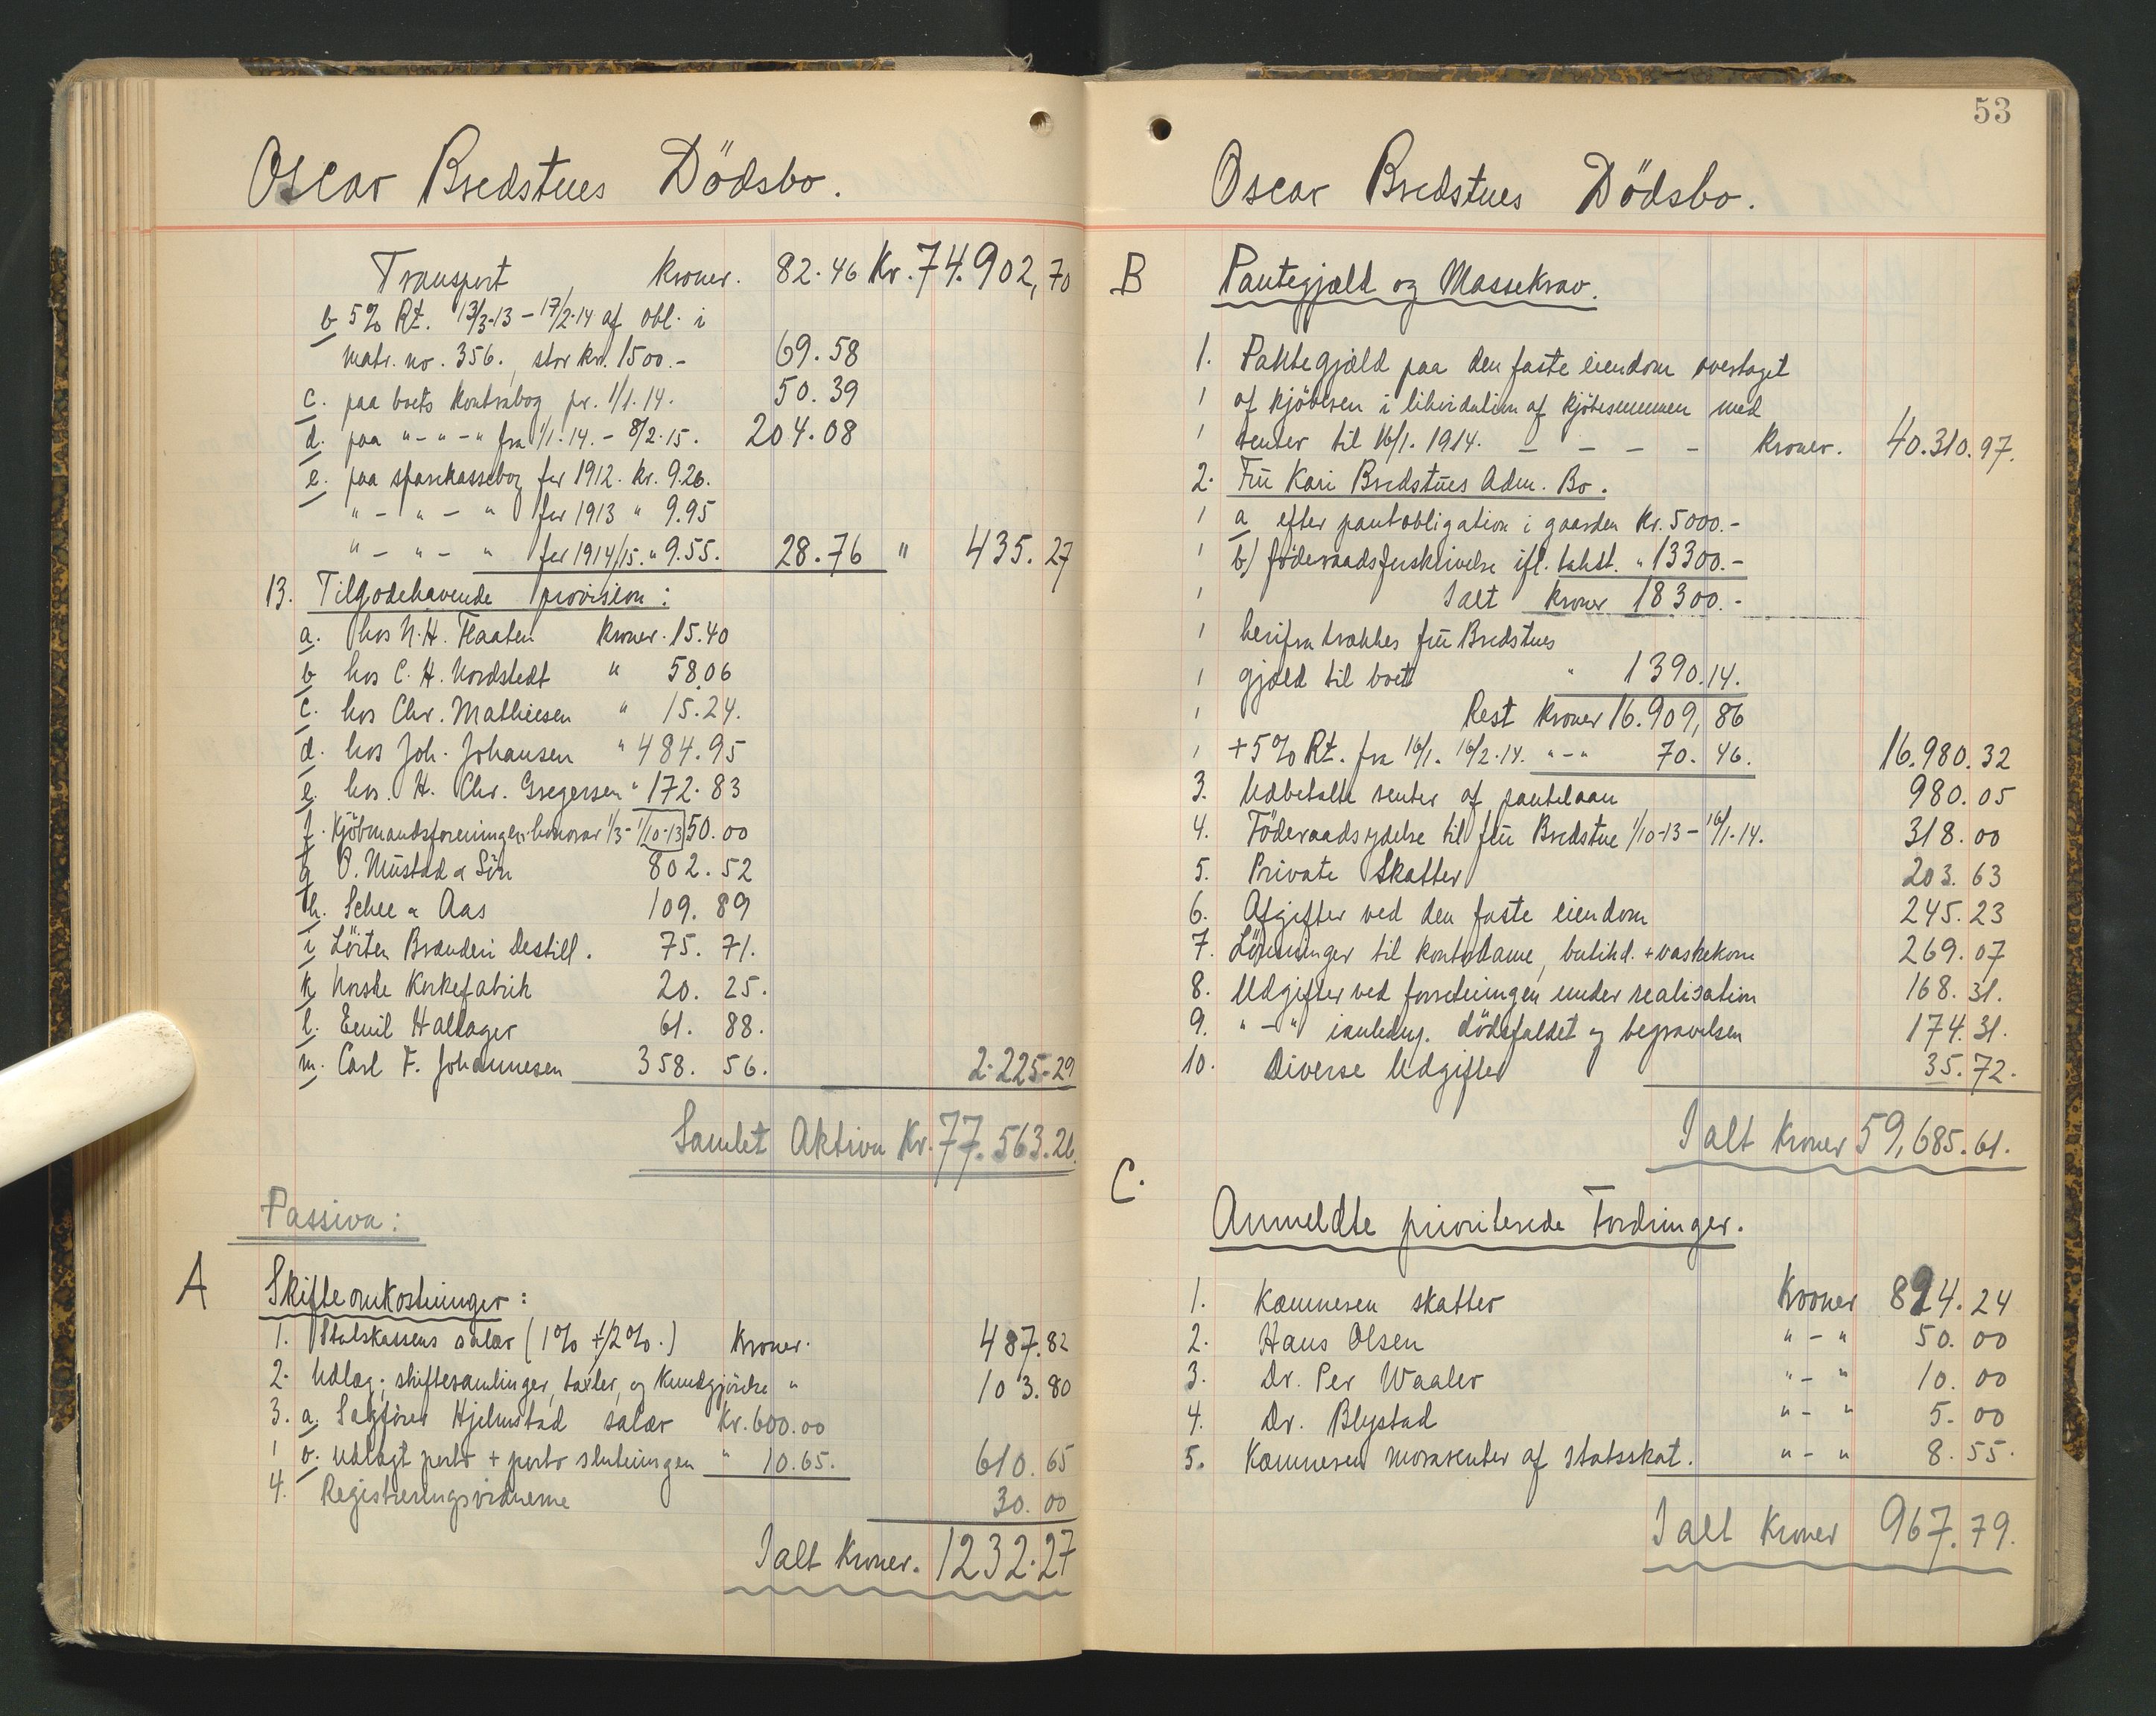 Oscar Bredstues Dödsbo.
Transport Kroner. 82.46 Kr. 74.902,70
b 5% Rt. 13/3-13 - 17/2-14 af obl. i
matr. no. 356., stor kr. 1500.-
69.58
c. paa boets Kontrabog pr. 1/1.14. 50.39
d. paa "-"-" fra 1/1-14. - 8/2-15. 204.08
e. paa sparekassebog for 1912. kr. 9.26.
"-"-" for 1913 " 9.95
"-"-" for 1914/15. " 9.55. 28.76 " 435.27
13. Tilgodehavende provision:
a. hos N.H. Flaaten Kroner. 15.40
b hos C. H. Nordstedt " 58.06
c. hos Chr. Mathiesen " 15.24.
d. hos Joh. Johansen " 484.95
e. hos. H. Chr. Gregersen " 172.83
f. Kjöbmandsforeningen. honorar 1/3-1/10-13 50.00
g O. Mustad & Sön 802.52
h. Schee & Aas 109.89
i Löiten Brænderi Destill. 75.71.
k Norske Korkefabrik 20.25.
l. Emil Hallager 61.88.
m. Carl F. Johannesen 358.56. 2.225-29
Samlet Aktiva Kr. 77.563.26.
Passiva:
A Skifteomkostninger:
1. Statskassens salær (1% + 1/2%.) Kroner. 487.82
2. Udlæg; skiftesamlinger, taxter, og Kundgjörelse " 103.80
3. a. Sagförer Hjelmstad salær Kr. 600.00
" b. Udlagt porto + porto slutningen " 10.65. 610.65
4. Registreringsvidnerne 30.00
Ialt Kroner. 1232.27
53
Oscar Bredstues Dödsbo.
B Pantegjæld og Massekrav.
1. Pantegjæld paa den faste eiendom overtaget
" af kjöberen i likvidation af kjöbesummen med
" renter til 16/1. 1914. - - - - Kroner. 40.310.97.
2. Fru Kari Bredstues Adm. Bo.
" a efter pantobligation i gaarden Kr. 5000.-
" b) föderaadsforskrivelse ifl. takst. " 13300.-
" Ialt Kroner 18300.-
" herifra trækkes fru Bredstues
" gjæld til boet " 1390.14.
" Rest Kroner 16.909,86
" + 5% Rt. fra 16/1. 16/2-14. "-" 70.46. 16.980.32
3. Udbetalte renter af pantelaan 980.05
4. Föderaadsydelse til fru Bredstue 1/10-13 - 16/1-14. 318.00
5. Private Skatter 203.63
6. Afgifter ved den faste eiendom 245.23
7. Lönninger til kontordame, butikd. + vaskekone 269.07
8. Udgifter ved forretningen under realisation 168.31.
9. "-" i anledng. dödsfaldet og begravelsen 174.31.
10. Diverse Udgifter 35.72.
Ialt Kroner 59,685.61.
C. Anmeldte prioriterede Fordringer.
1. Kæmneren skatter Kroner 894.24
2. Hans Olsen "-" 50.00
3. Dr. Per Waaler "-" 10.00
4. Dr. Blystad "-" 5.00
5. Kæmneren morarenter af statsskat. "-" 8.55.
Ialt Kroner 967.79.